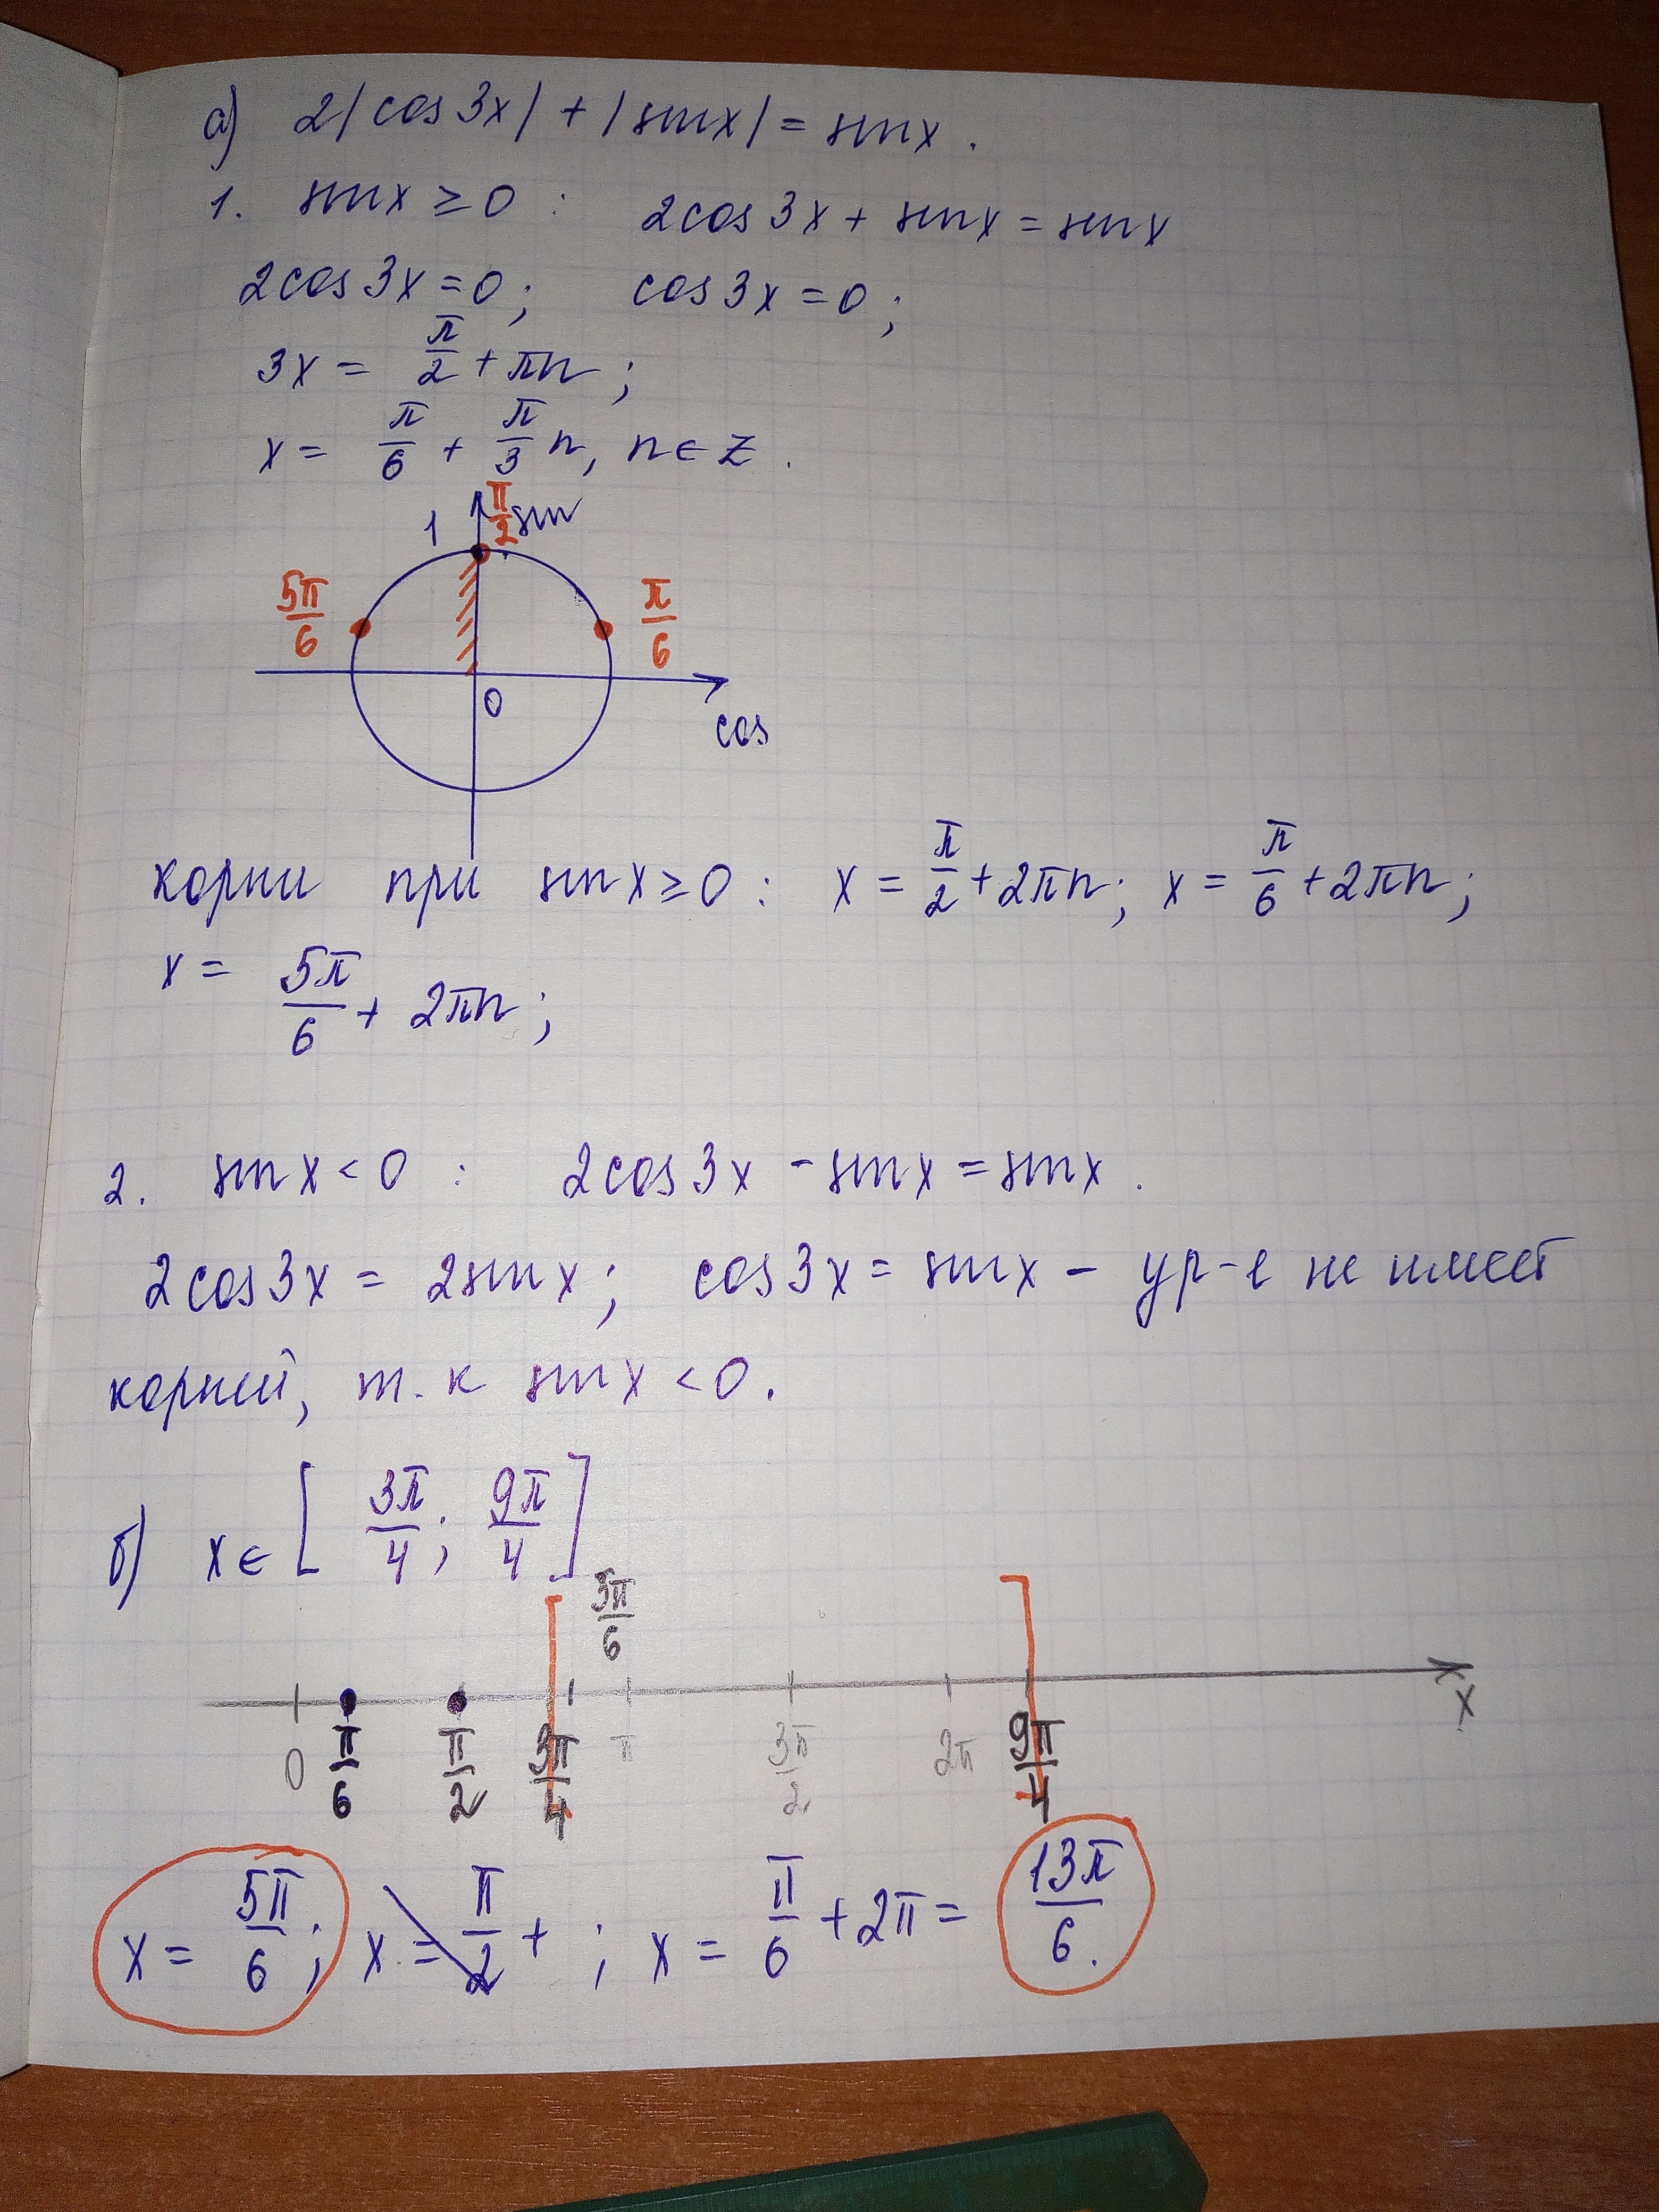 а) 2|cos3x| + |sinx| = sinx.
1. sinx ≥ 0 : 2cos3x + sinx = sinx
2cos3x = 0; cos3x = 0;
3x = π/2 + πn;
x = π/6 + π/3 n, n ∈ Z.
1 π/2 sin
5π/6 π/6
0
cos
корни при sinx ≥ 0 : x = π/2 + 2πn; x = π/6 + 2πn;
x = 5π/6 + 2πn;
2. sinx < 0 : 2cos3x - sinx = sinx.
2cos3x = 2sinx; cos3x = sinx - ур-е не имеет
корней, т.к sinx < 0.
б) x ∈ [3π/4; 9π/4]
5π/6
0 π/6 π/2 3π/4 π 3π/2 2π 9π/4 x
x = 5π/6; x = π/2 + ; x = π/6 + 2π = 13π/6.